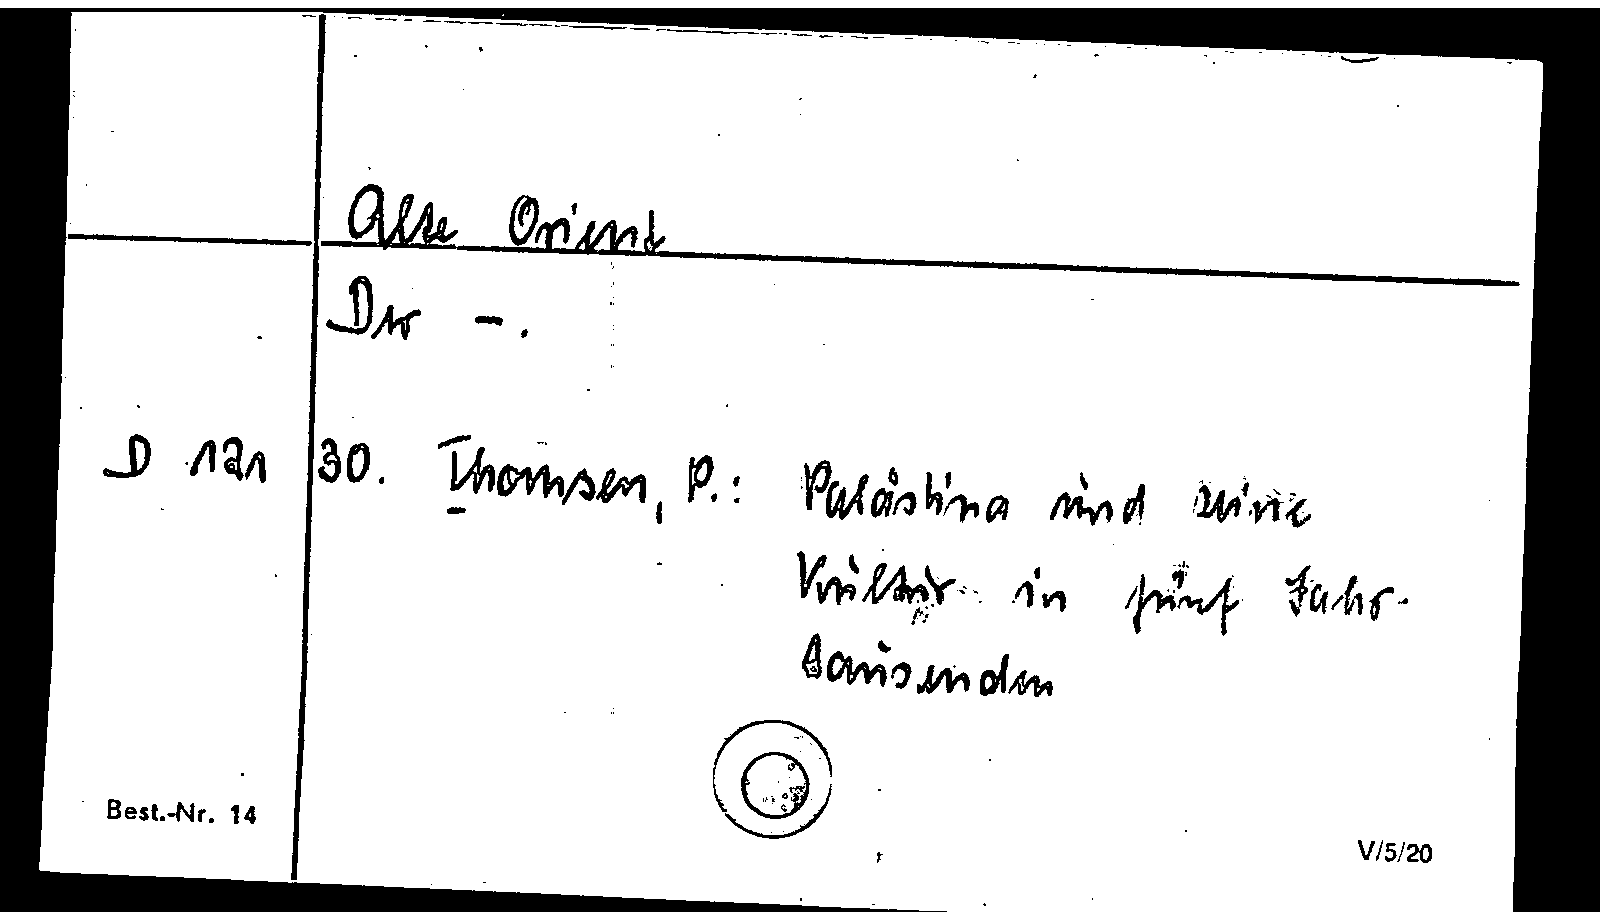 Alte Orient
Der -.
D 121 30. Thomsen, P.: Palästina und seine
Kultur in fünf Jahr-
tausenden
Best.-Nr. 14
V/5/20